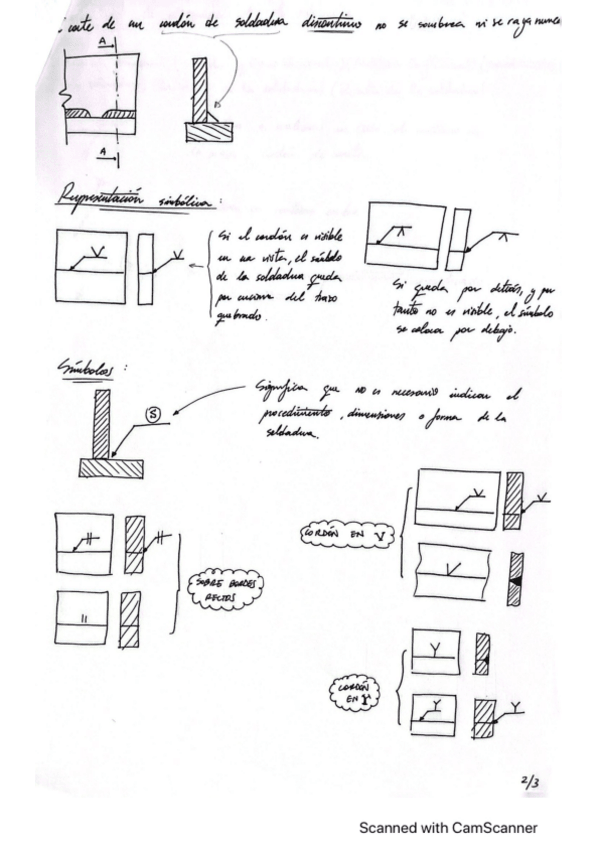 corte de un cordón de soldadura discontinuo no se sombrea ni se raya nunca
A
A
Representación simbólica:
Si el cordón es visible
en una vista, el símbolo
de la soldadura queda
por encima del trazo
quebrado.
Si queda por detrás, y por
tanto no es visible, el símbolo
se coloca por debajo.
Símbolos:
S
Significa que no es necesario indicar el
procedimiento, dimensiones o forma de la
soldadura.
CORDÓN EN V
SOBRE BORDES
RECTOS
CORDÓN
EN Y
2/3
Scanned with CamScanner